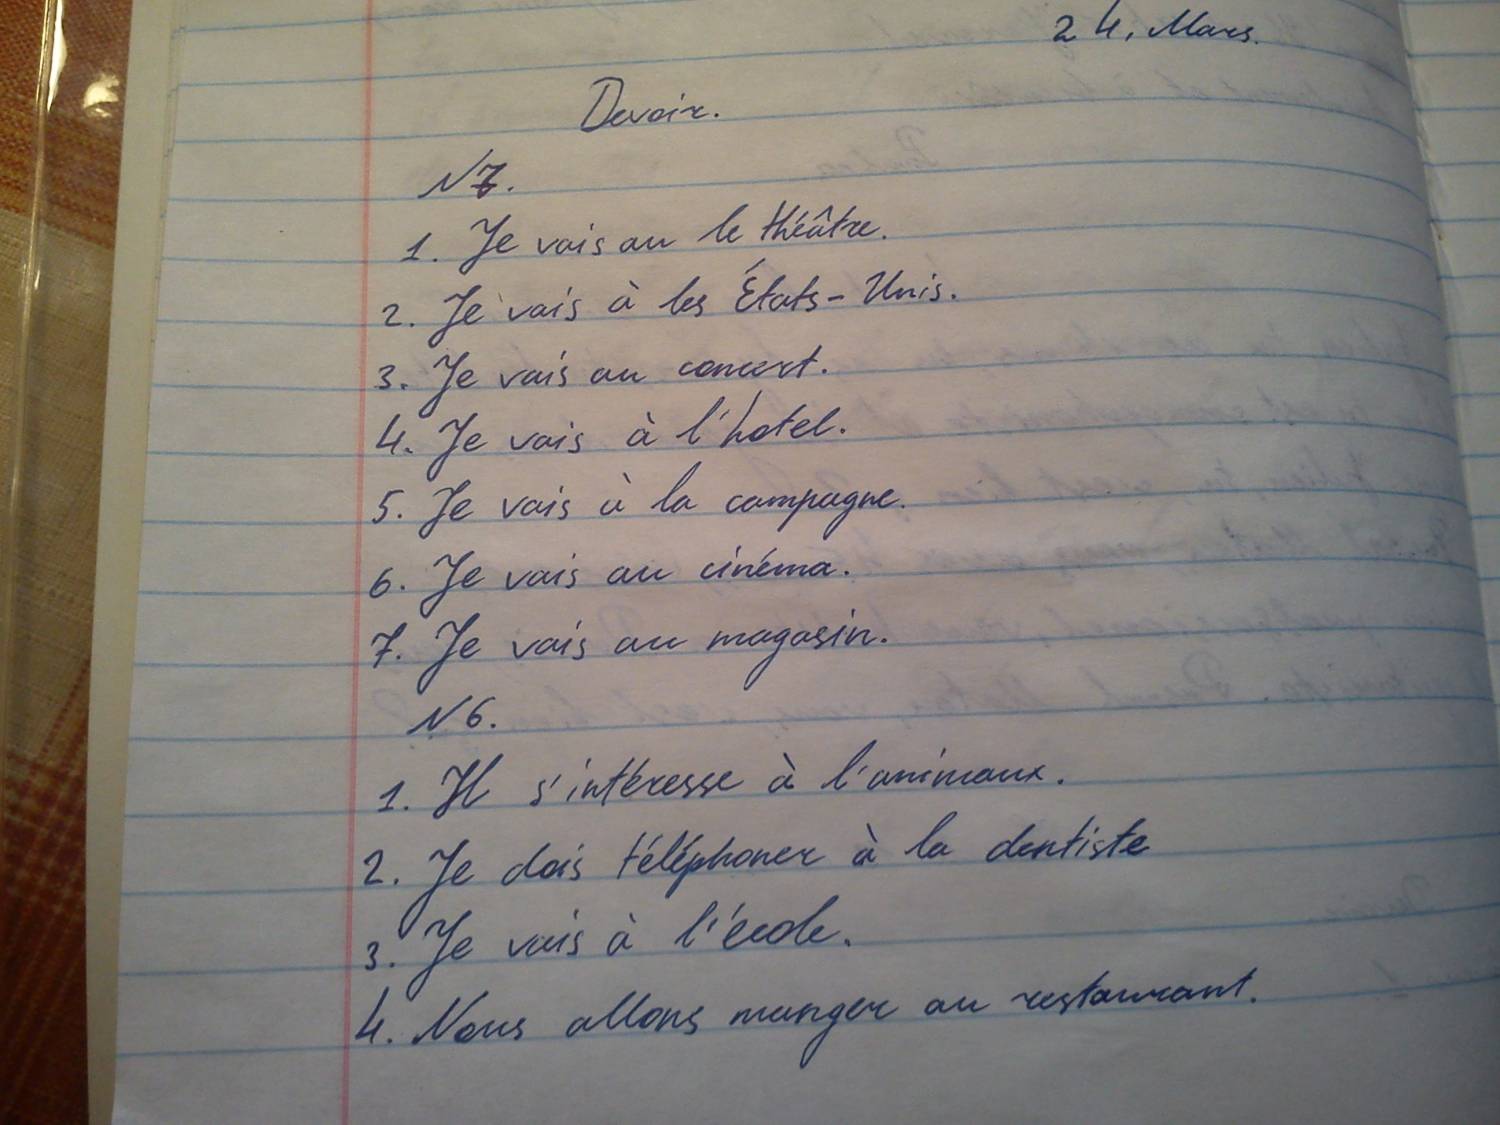 24. Mars.
Devoir.
N7.
1. Je vais au le théâtre.
2. Je vais à les États-Unis.
3. Je vais au concert.
4. Je vais à l'hotel.
5. Je vais à la campagne.
6. Je vais au cinéma.
7. Je vais au magasin.
N6.
1. Il s'intéresse à l'animaux.
2. Je dois téléphoner à la dentiste
3. Je vais à l'école.
4. Nous allons manger au restaurant.